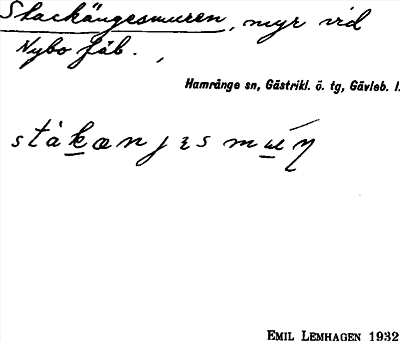 Stackängesmuren, myr vid
Nybo fäb.,
Hamrånge sn, Gästrikl. ö. tg, Gävleb. l.
stàkænjɛs
EMIL LEMHAGEN 1932